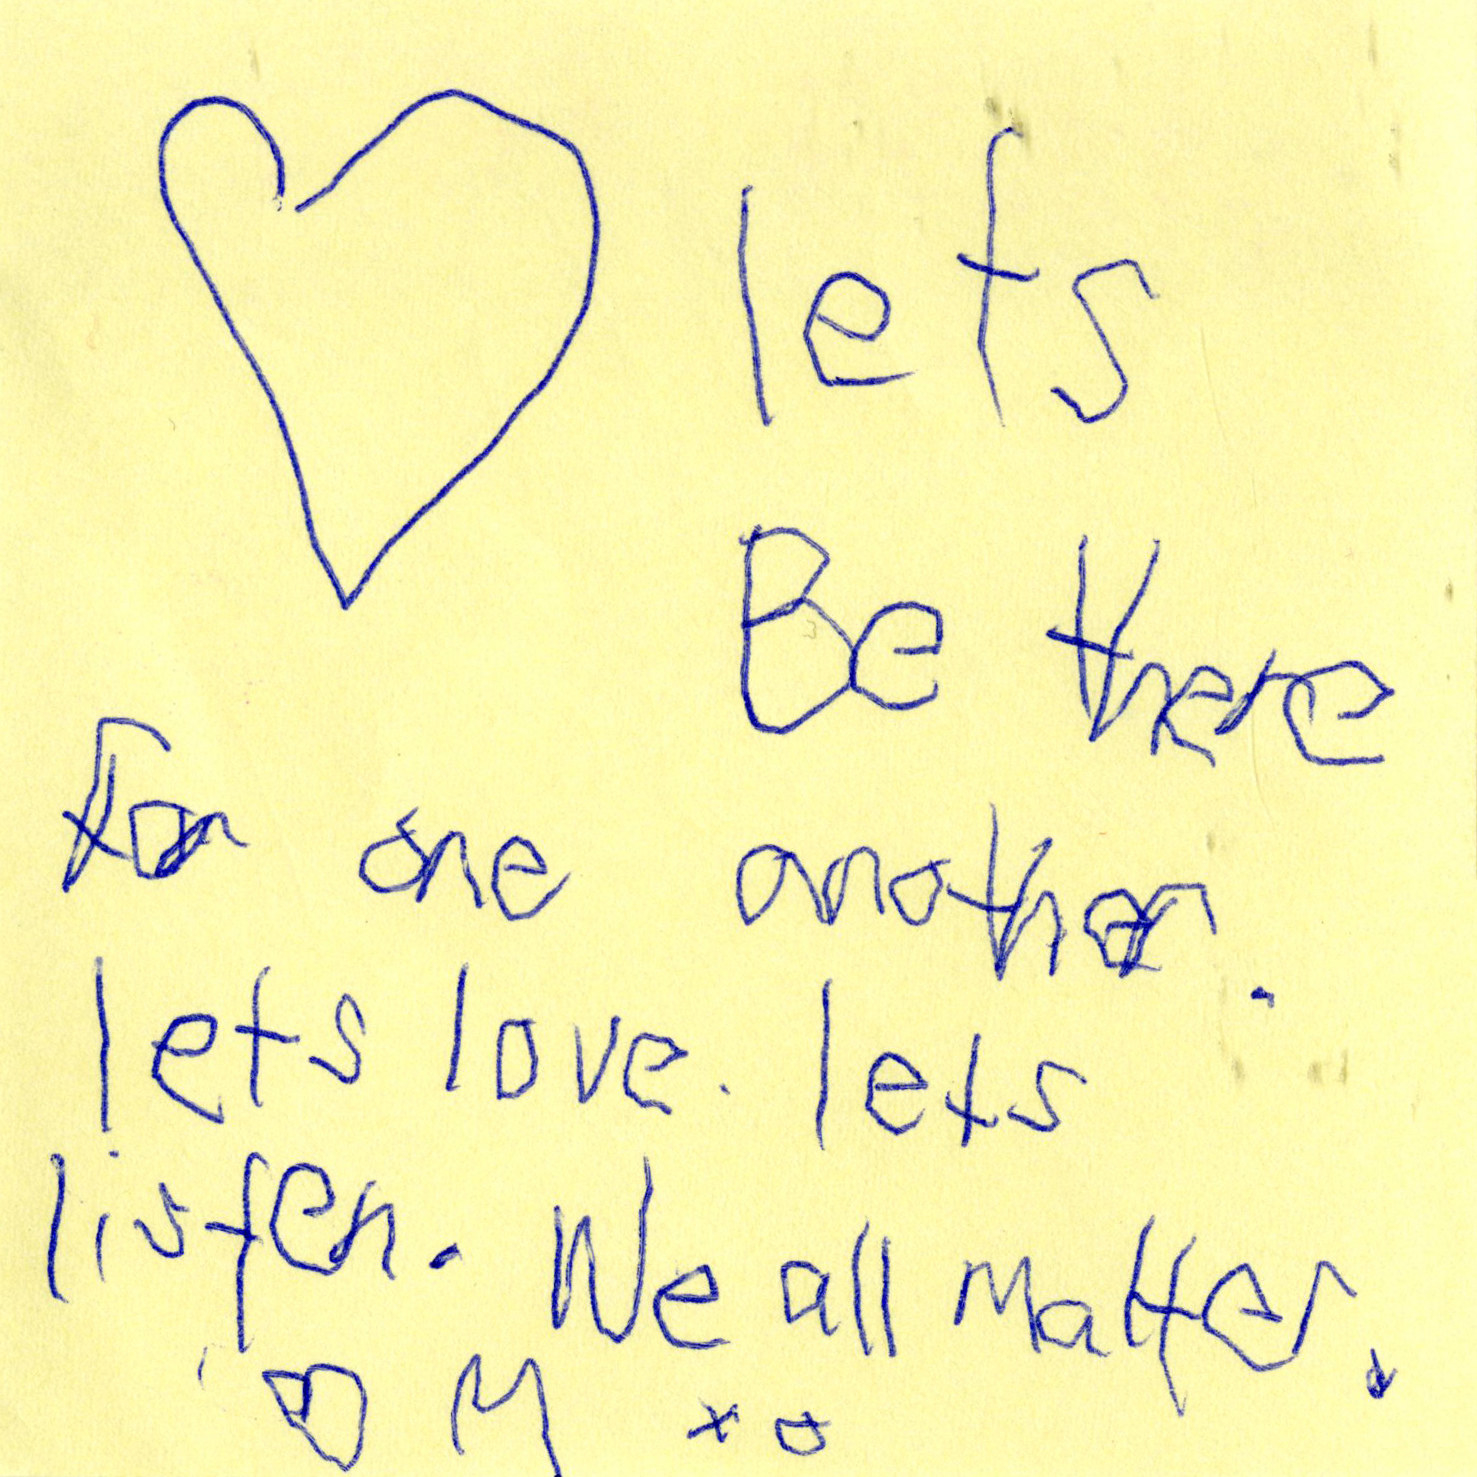 lets
Be there
for one another.
lets love. lets
listen. We all matter.
M xo